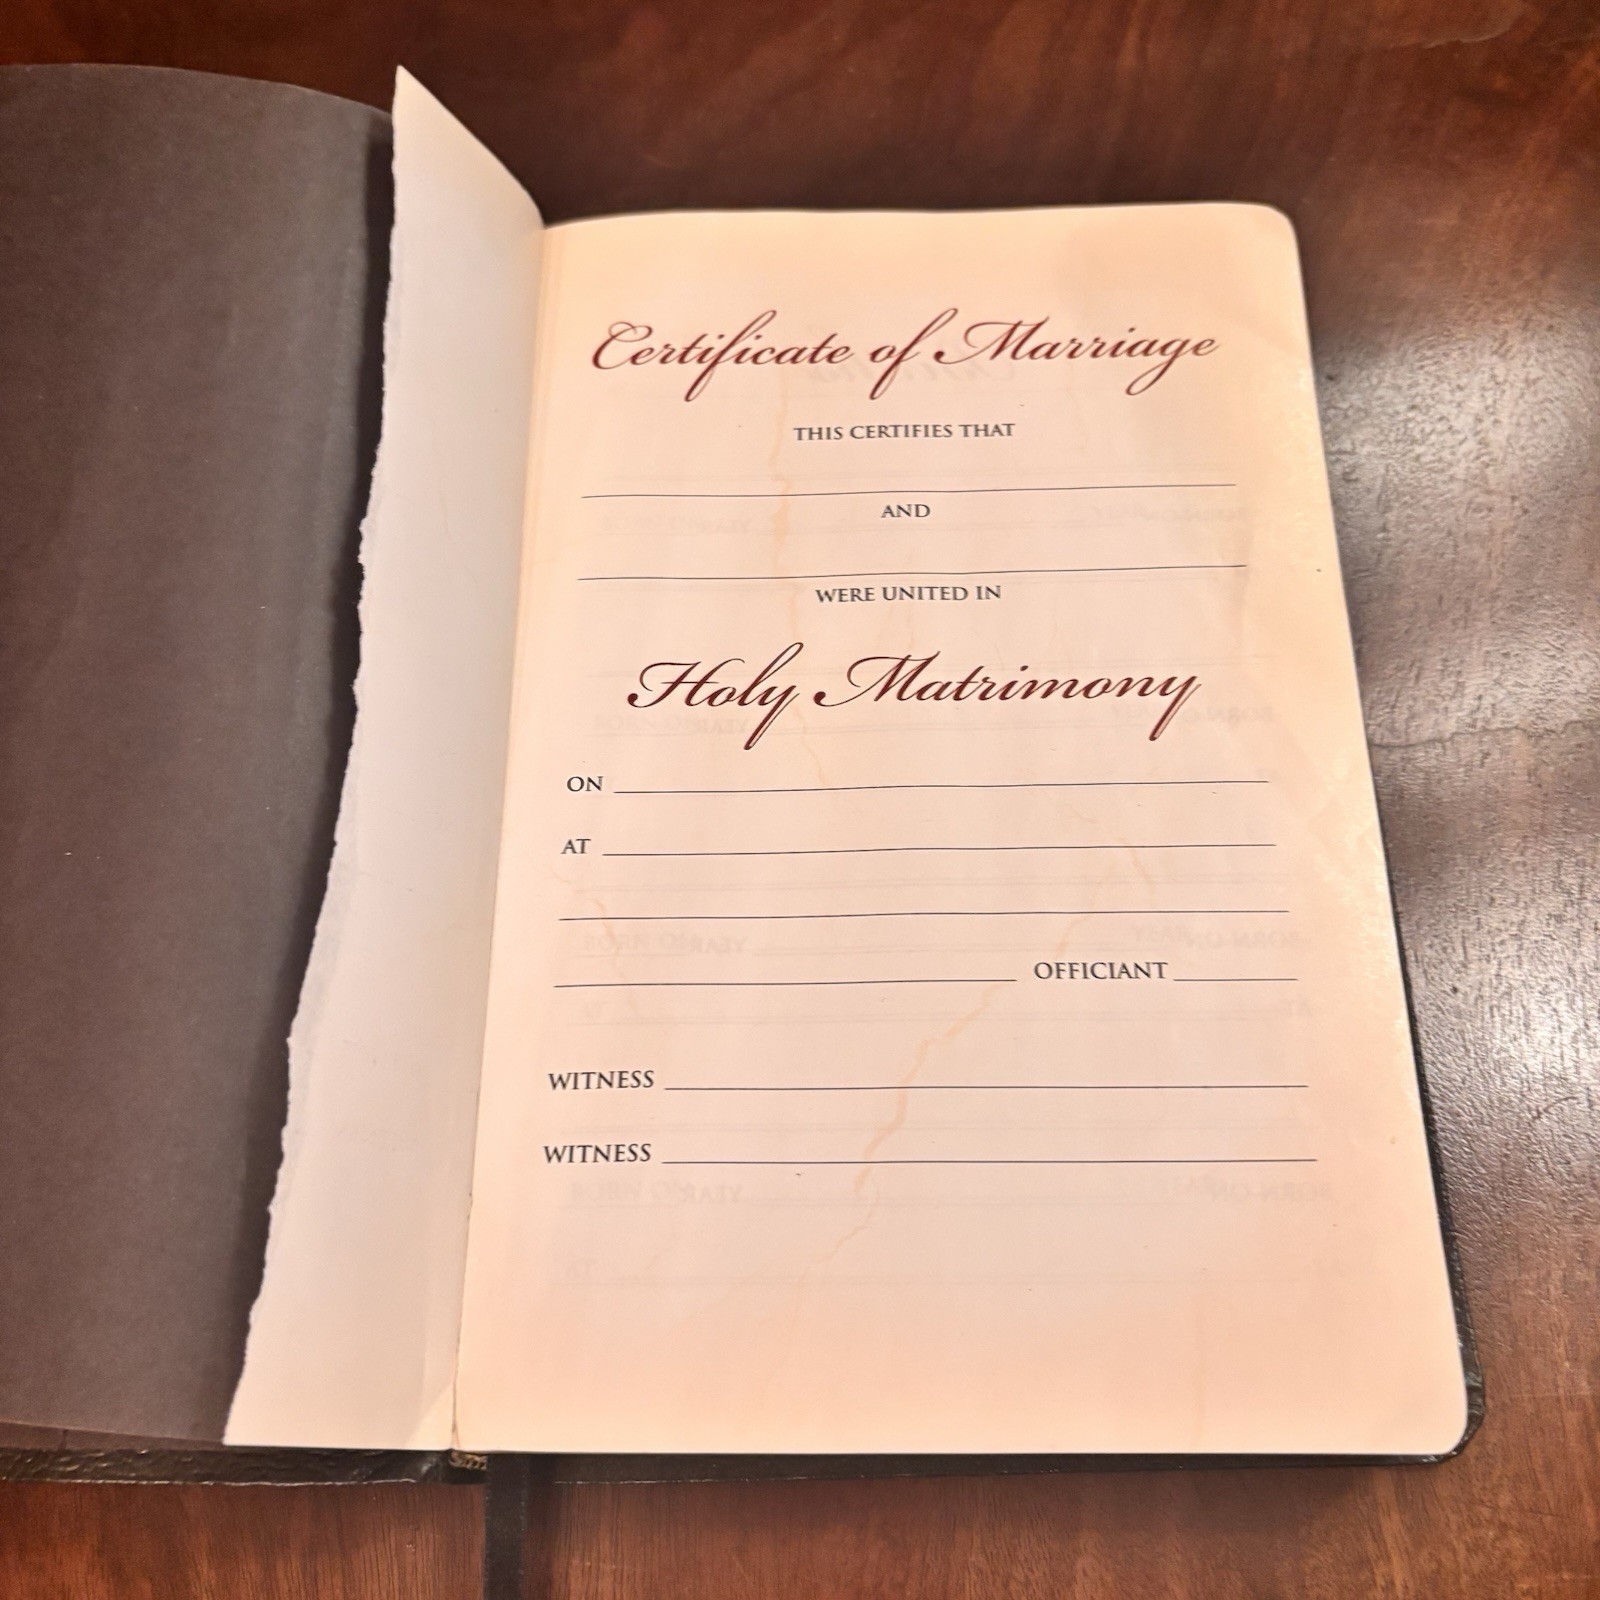 Certificate of Marriage
THIS CERTIFIES THAT
AND
WERE UNITED IN
Holy Matrimony
ON
AT
OFFICIANT
WITNESS
WITNESS